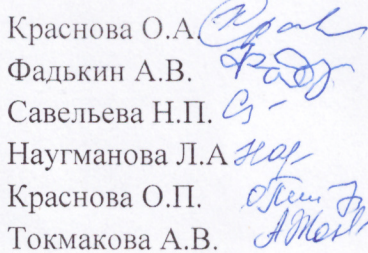 Краснова О.А.
Фадькин А.В.
Савельева Н.П.
Наугманова Л.А
Краснова О.П.
Токмакова А.В.